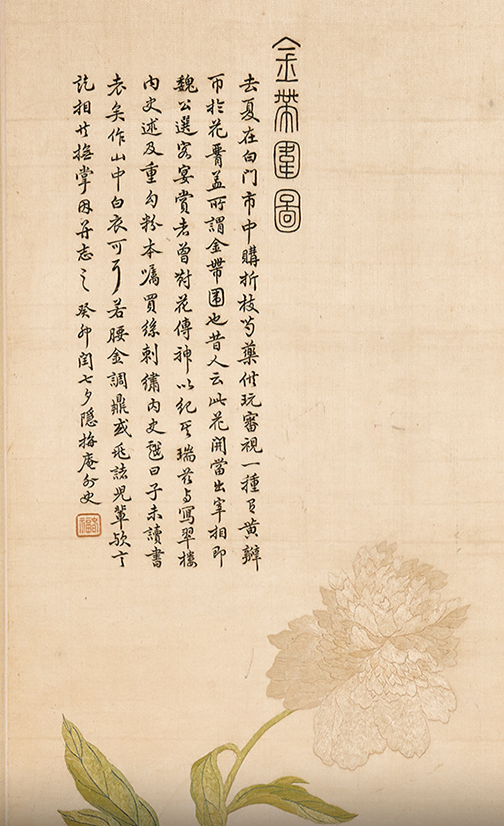 金帶圍圖
去夏在白門市中購折枝芍藥供玩審視一種有黃瓣
帀於花脣蓋所謂金帶圍也昔人云此花開當出宰相即
魏公選客宴賞者曾對花傳神以紀其瑞茲與寫翠樓
內史述及重勾粉本囑買絲刺繡內史戲曰子未讀書
老矣作山中白衣可耳若腰金調鼎或兆諸兒輩歟言
訖相共撫掌因并志之 癸卯閏七夕隱梅庵外史